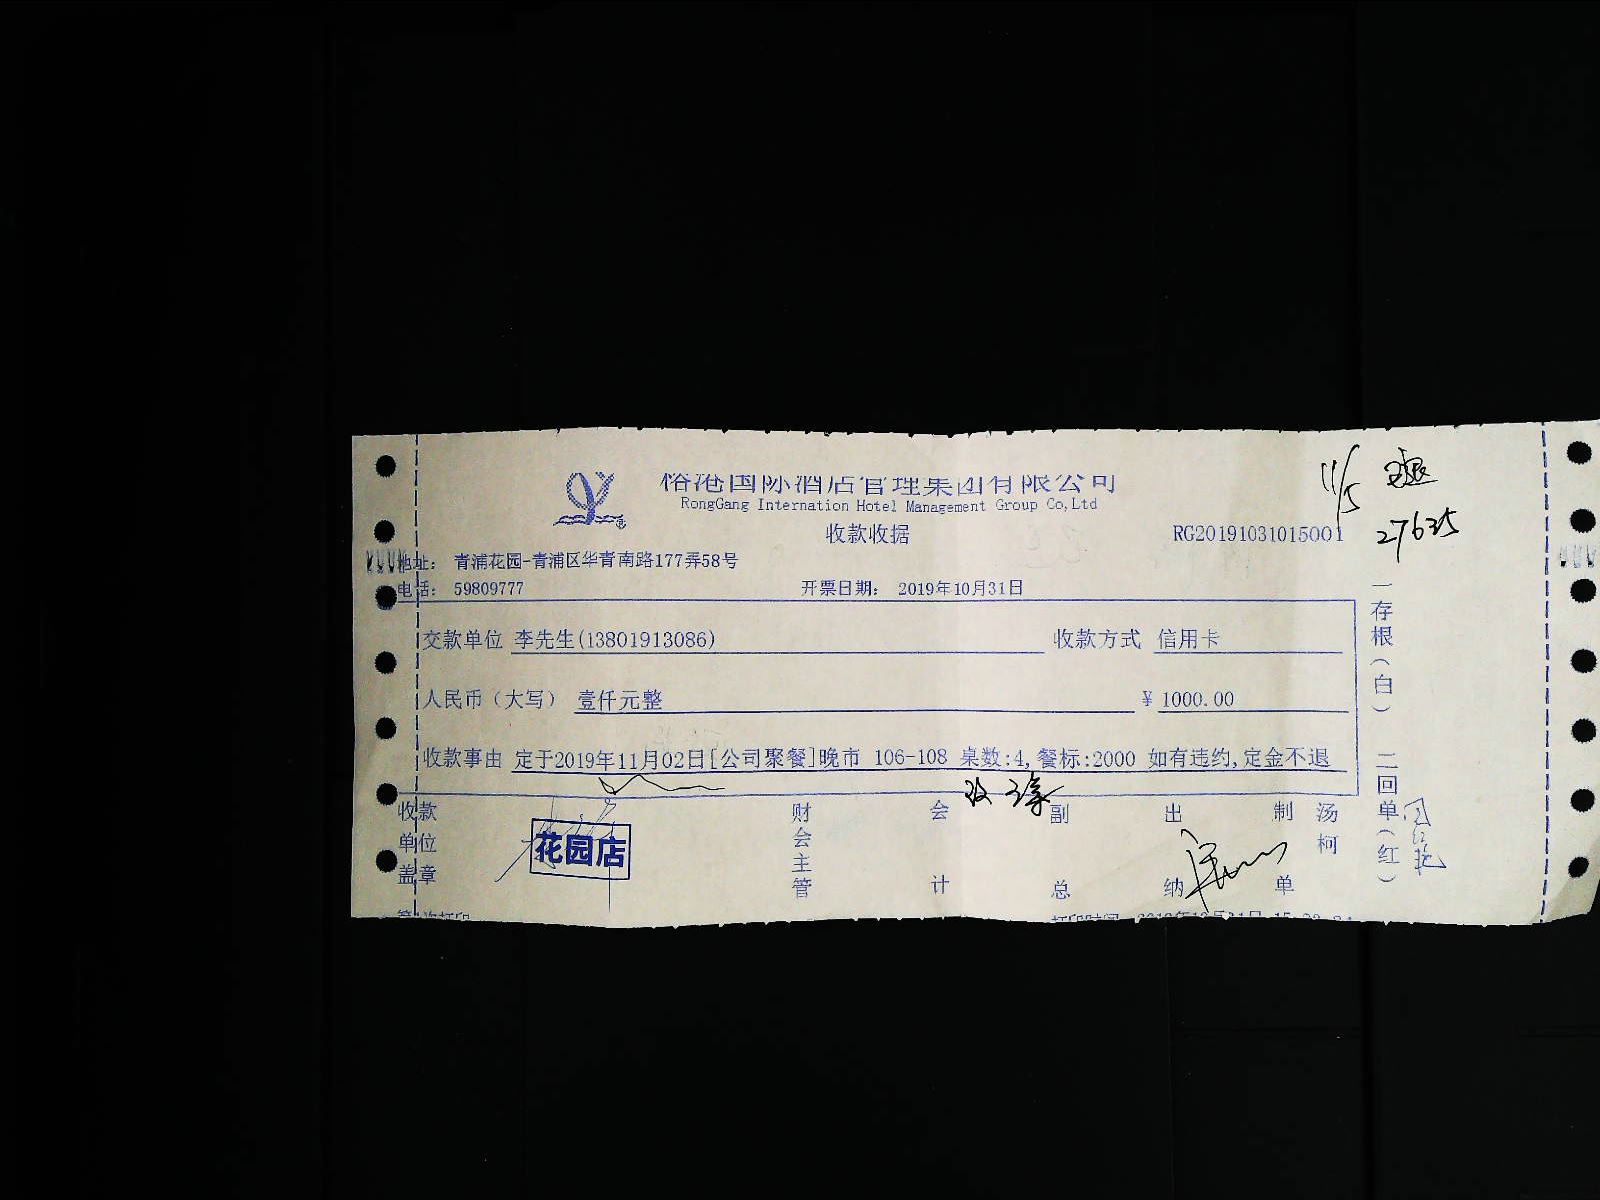 港国际酒店管理集团有限公司
RongGang Internation Hotel Management Group Co,Ltd
收款收据
RG20191031015001
11/5
27635
地址： 青浦花园-青浦区华青南路177弄58号
电话： 59809777
开票日期： 2019年10月31日
交款单位 李先生(13801913086)
收款方式 信用卡
人民币（大写） 壹仟元整
¥ 1000.00
收款事由 定于2019年11月02日[公司聚餐]晚市 106-108 桌数:4,餐标:2000 如有违约,定金不退
收款单位盖章
花园店
财会主管
会计
副总
出纳
制单
汤柯
一存根（白） 二回单（红）